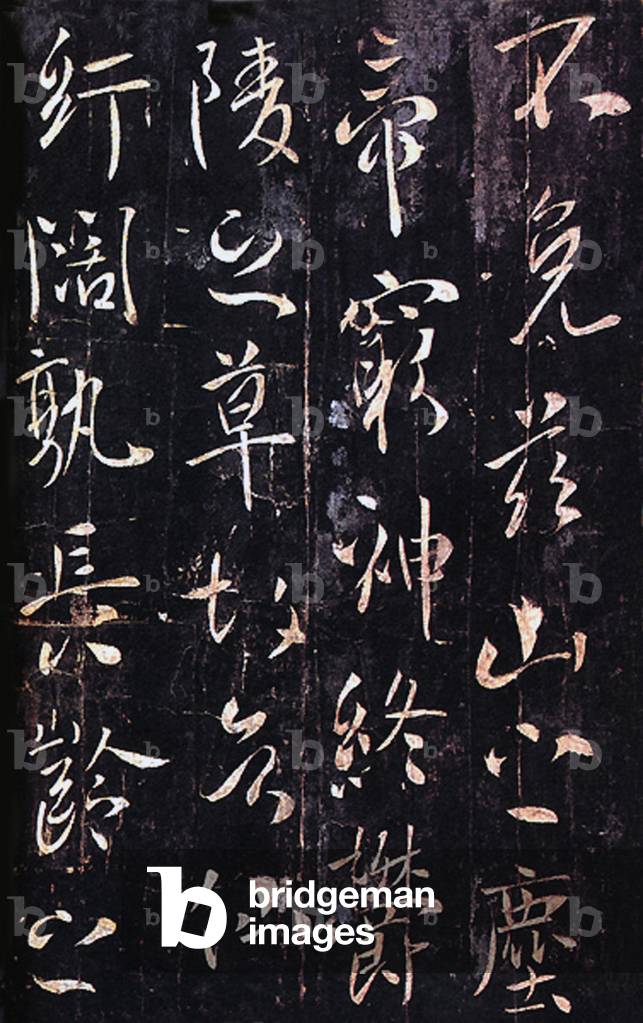 不免茲山之塵
帝窮神終鬱
陵之草故
紆闊孰長齡之
bridgeman
images